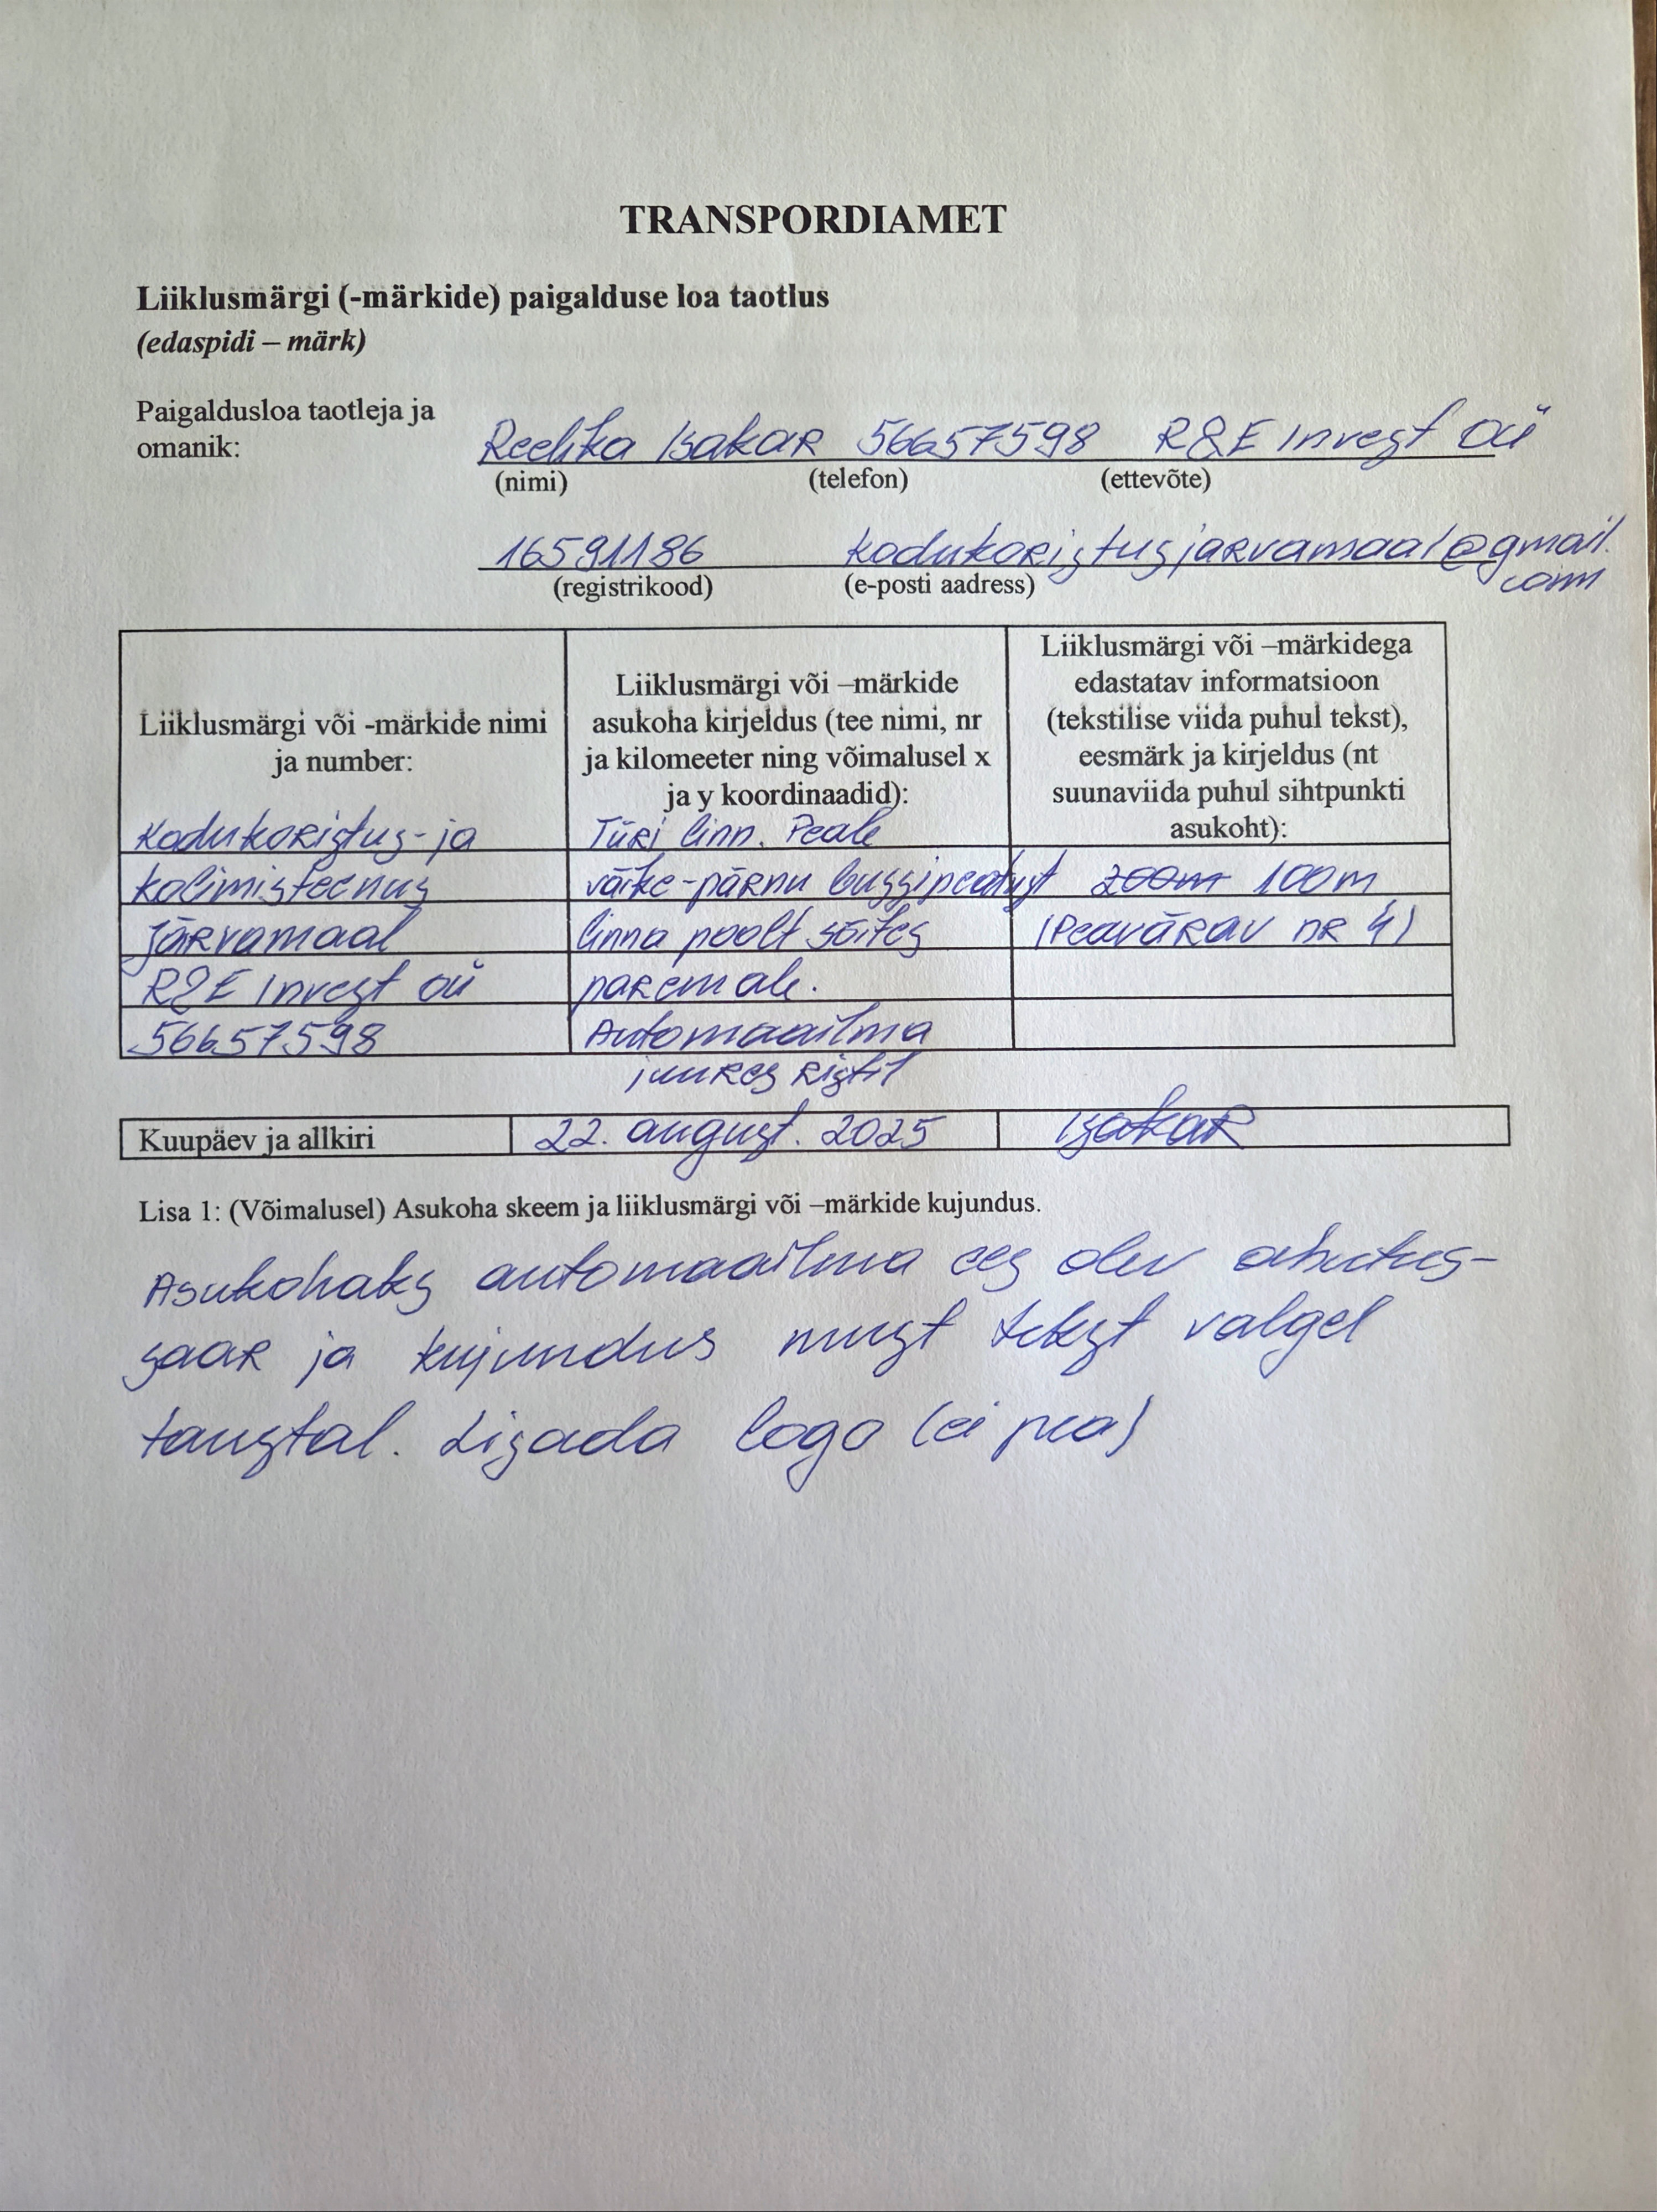 TRANSPORDIAMET
Liiklusmärgi (-märkide) paigalduse loa taotlus
(edaspidi – märk)
Paigaldusloa taotleja ja
omanik:
Reelika Isakar 56657598 R&E Invest OÜ
(nimi) (telefon) (ettevõte)
16591186 kodukoristusjarvamaal@gmail.
com
(registrikood) (e-posti aadress)
Liiklusmärgi või -märkide nimi
ja number:
Kodukoristus- ja
kolimisteenus
Järvamaal
R&E Invest OÜ
56657598
Liiklusmärgi või –märkide
asukoha kirjeldus (tee nimi, nr
ja kilomeeter ning võimalusel x
ja y koordinaadid):
Türi linn. Peale
väike-pärnu bussipeatust
linna poolt sõites
paremale.
Automaailma
juures ristil
Liiklusmärgi või –märkidega
edastatav informatsioon
(tekstilise viida puhul tekst),
eesmärk ja kirjeldus (nt
suunaviida puhul sihtpunkti
asukoht):
200m 100m
(Peavärav nr 4)
Kuupäev ja allkiri 22. august. 2025 Isakar
Lisa 1: (Võimalusel) Asukoha skeem ja liiklusmärgi või –märkide kujundus.
Asukohaks automaailma ees olev ohutus-
saar ja kujundus must tekst valgel
taustal. Lisada logo (ei pea)